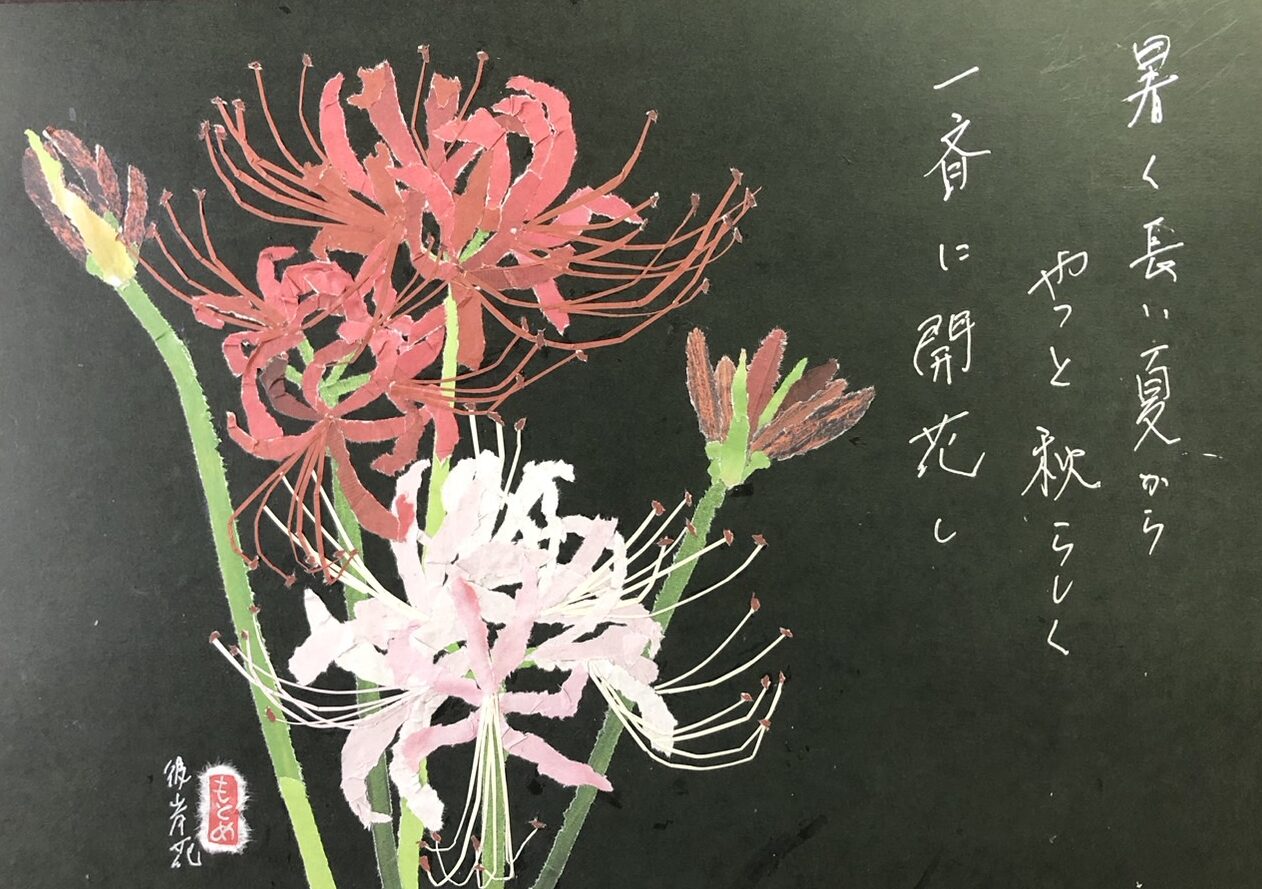 暑く長い夏から
やっと秋らしく
一斉に開花し
彼岸花
もとめ